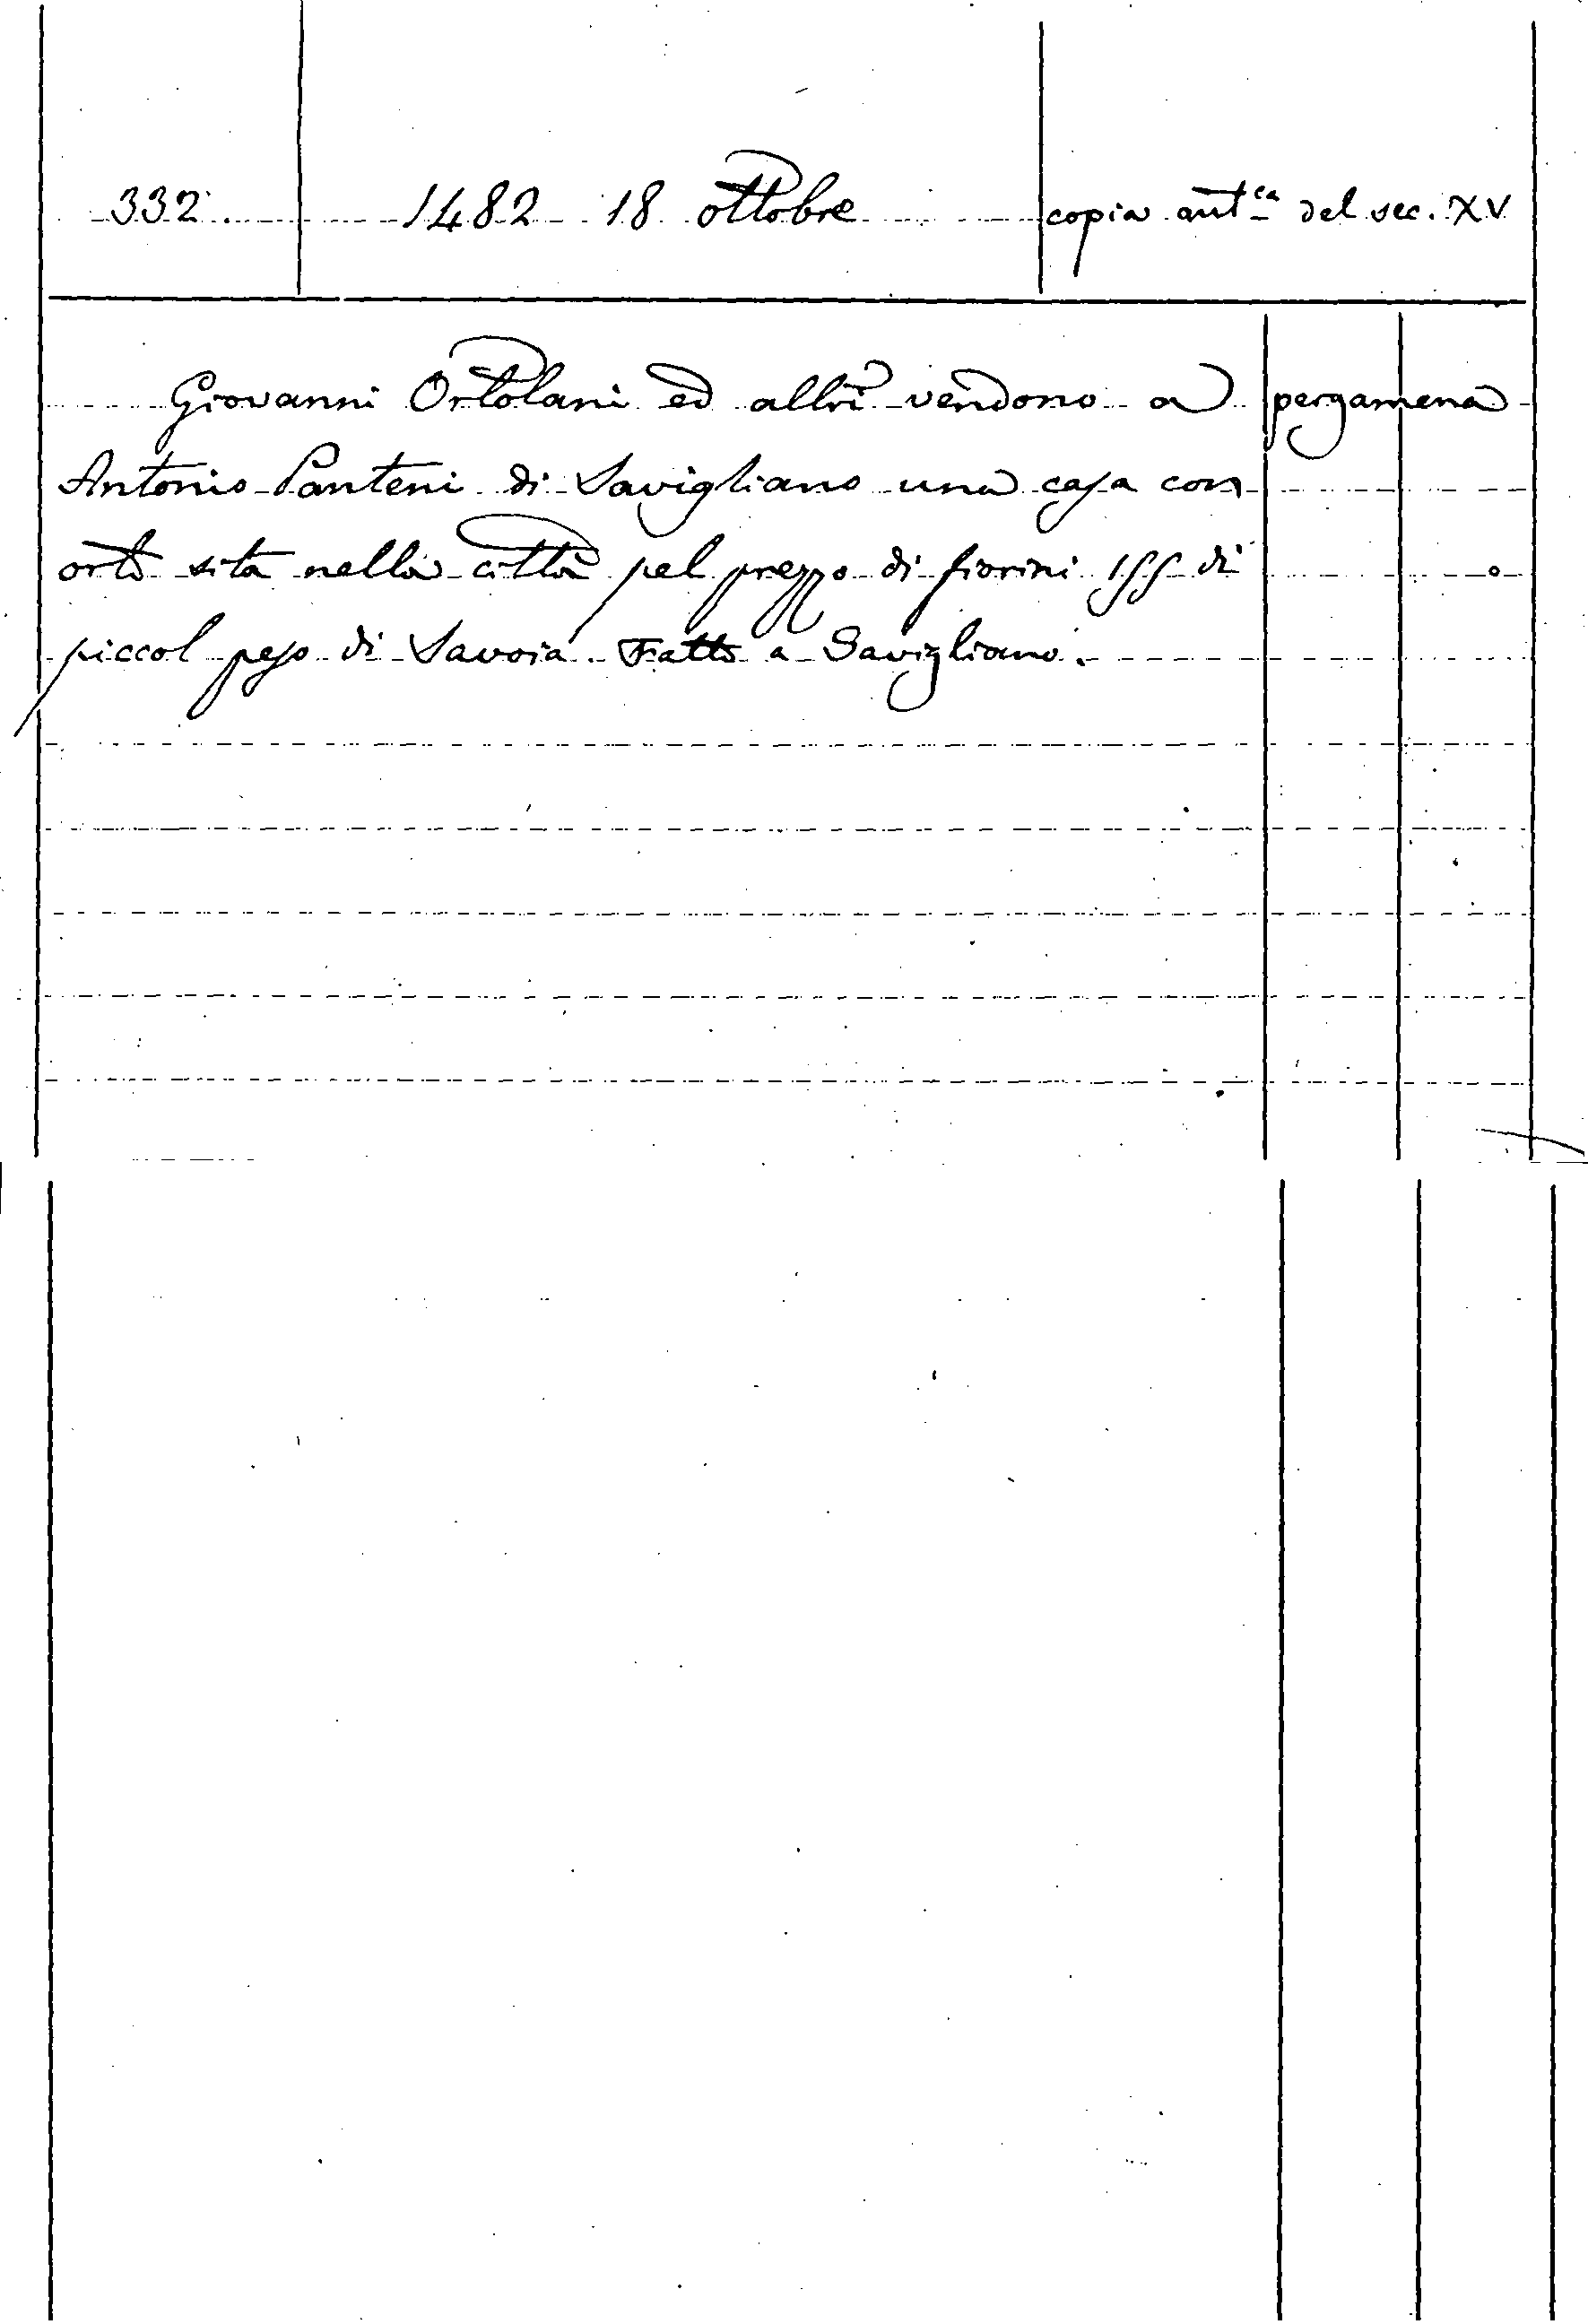 332. 1482 18 ottobre copia aut.ca del sec. XV
Giovanni Ortolani ed altri vendono a pergamena
Antonio Panteri di Savigliano una casa con
orto sita nella città pel prezzo di fiorini 155 di
piccol peso di Savoia. Fatto a Savigliano.